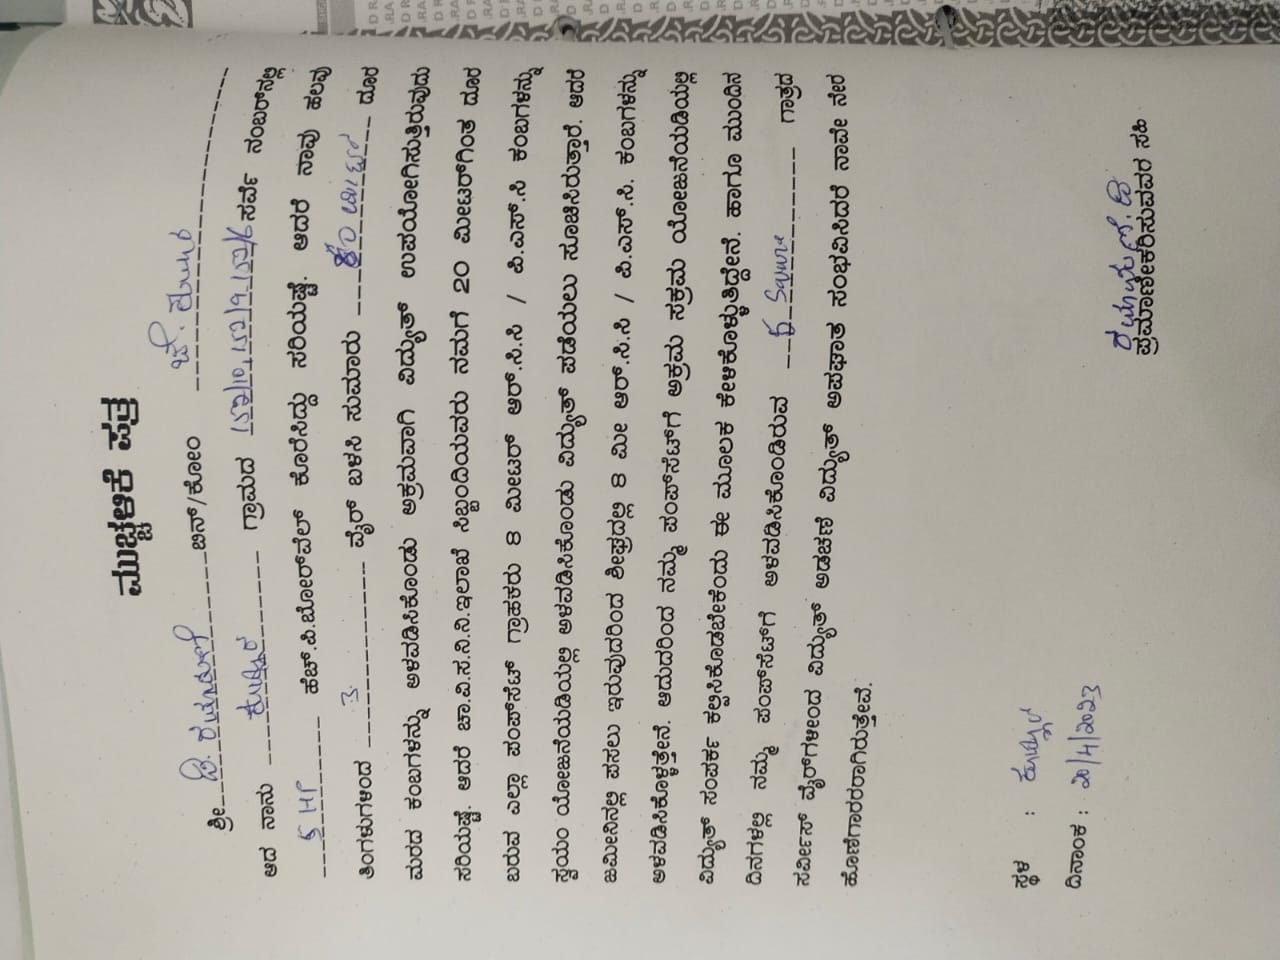 ಮುಚ್ಚಳಿಕೆ ಪತ್ರ
ಶ್ರೀ ಬಿನ್/ಕೋಂ
ಆದ ನಾನು ಗ್ರಾಮದ 152/10, 152/9, 152/6 ಸರ್ವೆ ನಂಬರ್‌ನಲ್ಲಿ
5 HP ಹೆಚ್.ಪಿ.ಬೋರ್‌ವೆಲ್ ಕೊರೆಸಿದ್ದು ಸರಿಯಷ್ಟೆ. ಆದರೆ ನಾವು ಹಲವು
ತಿಂಗಳುಗಳಿಂದ 3 ವೈರ್ ಬಳಸಿ ಸುಮಾರು ಮೀಟರ್ ದೂರ
ಮರದ ಕಂಬಗಳನ್ನು ಅಳವಡಿಸಿಕೊಂಡು ಅಕ್ರಮವಾಗಿ ವಿದ್ಯುತ್ ಉಪಯೋಗಿಸುತ್ತಿರುವುದು
ಸರಿಯಷ್ಟೆ. ಆದರೆ ಚಾ.ವಿ.ಸ.ನಿ.ನಿ.ಇಲಾಖೆ ಸಿಬ್ಬಂದಿಯವರು ನಮಗೆ 20 ಮೀಟರ್‌ಗಿಂತ ದೂರ
ಬರುವ ಎಲ್ಲಾ ಪಂಪ್‌ಸೆಟ್ ಗ್ರಾಹಕರು 8 ಮೀಟರ್ ಆರ್.ಸಿ.ಸಿ / ಪಿ.ಎಸ್.ಸಿ ಕಂಬಗಳನ್ನು
ಸ್ವಯಂ ಯೋಜನೆಯಡಿಯಲ್ಲಿ ಅಳವಡಿಸಿಕೊಂಡು ವಿದ್ಯುತ್ ಪಡೆಯಲು ಸೂಚಿಸಿರುತ್ತಾರೆ. ಆದರೆ
ಜಮೀನಿನಲ್ಲಿ ಫಸಲು ಇರುವುದರಿಂದ ಶೀಘ್ರದಲ್ಲಿ 8 ಮೀ ಆರ್.ಸಿ.ಸಿ / ಪಿ.ಎಸ್.ಸಿ. ಕಂಬಗಳನ್ನು
ಅಳವಡಿಸಿಕೊಳ್ಳುತ್ತೇನೆ. ಆದುದರಿಂದ ನಮ್ಮ ಪಂಪ್‌ಸೆಟ್‌ಗೆ ಅಕ್ರಮ ಸಕ್ರಮ ಯೋಜನೆಯಡಿಯಲ್ಲಿ
ವಿದ್ಯುತ್ ಸಂಪರ್ಕ ಕಲ್ಪಿಸಿಕೊಡಬೇಕೆಂದು ಈ ಮೂಲಕ ಕೇಳಿಕೊಳ್ಳುತ್ತಿದ್ದೇನೆ. ಹಾಗೂ ಮುಂದಿನ
ದಿನಗಳಲ್ಲಿ ನಮ್ಮ ಪಂಪ್‌ಸೆಟ್‌ಗೆ ಅಳವಡಿಸಿಕೊಂಡಿರುವ ಗಾತ್ರದ
ಸರ್ವೀಸ್ ವೈರ್‌ಗಳಿಂದ ವಿದ್ಯುತ್ ಅಡಚಣೆ ವಿದ್ಯುತ್ ಅಪಘಾತ ಸಂಭವಿಸಿದರೆ ನಾವೇ ನೇರ
ಹೊಣೆಗಾರರಾಗಿರುತ್ತೇವೆ.
ಸ್ಥಳ :
ದಿನಾಂಕ : 20/4/2023
ಪ್ರಮಾಣೀಕರಿಸುವವರ ಸಹಿ